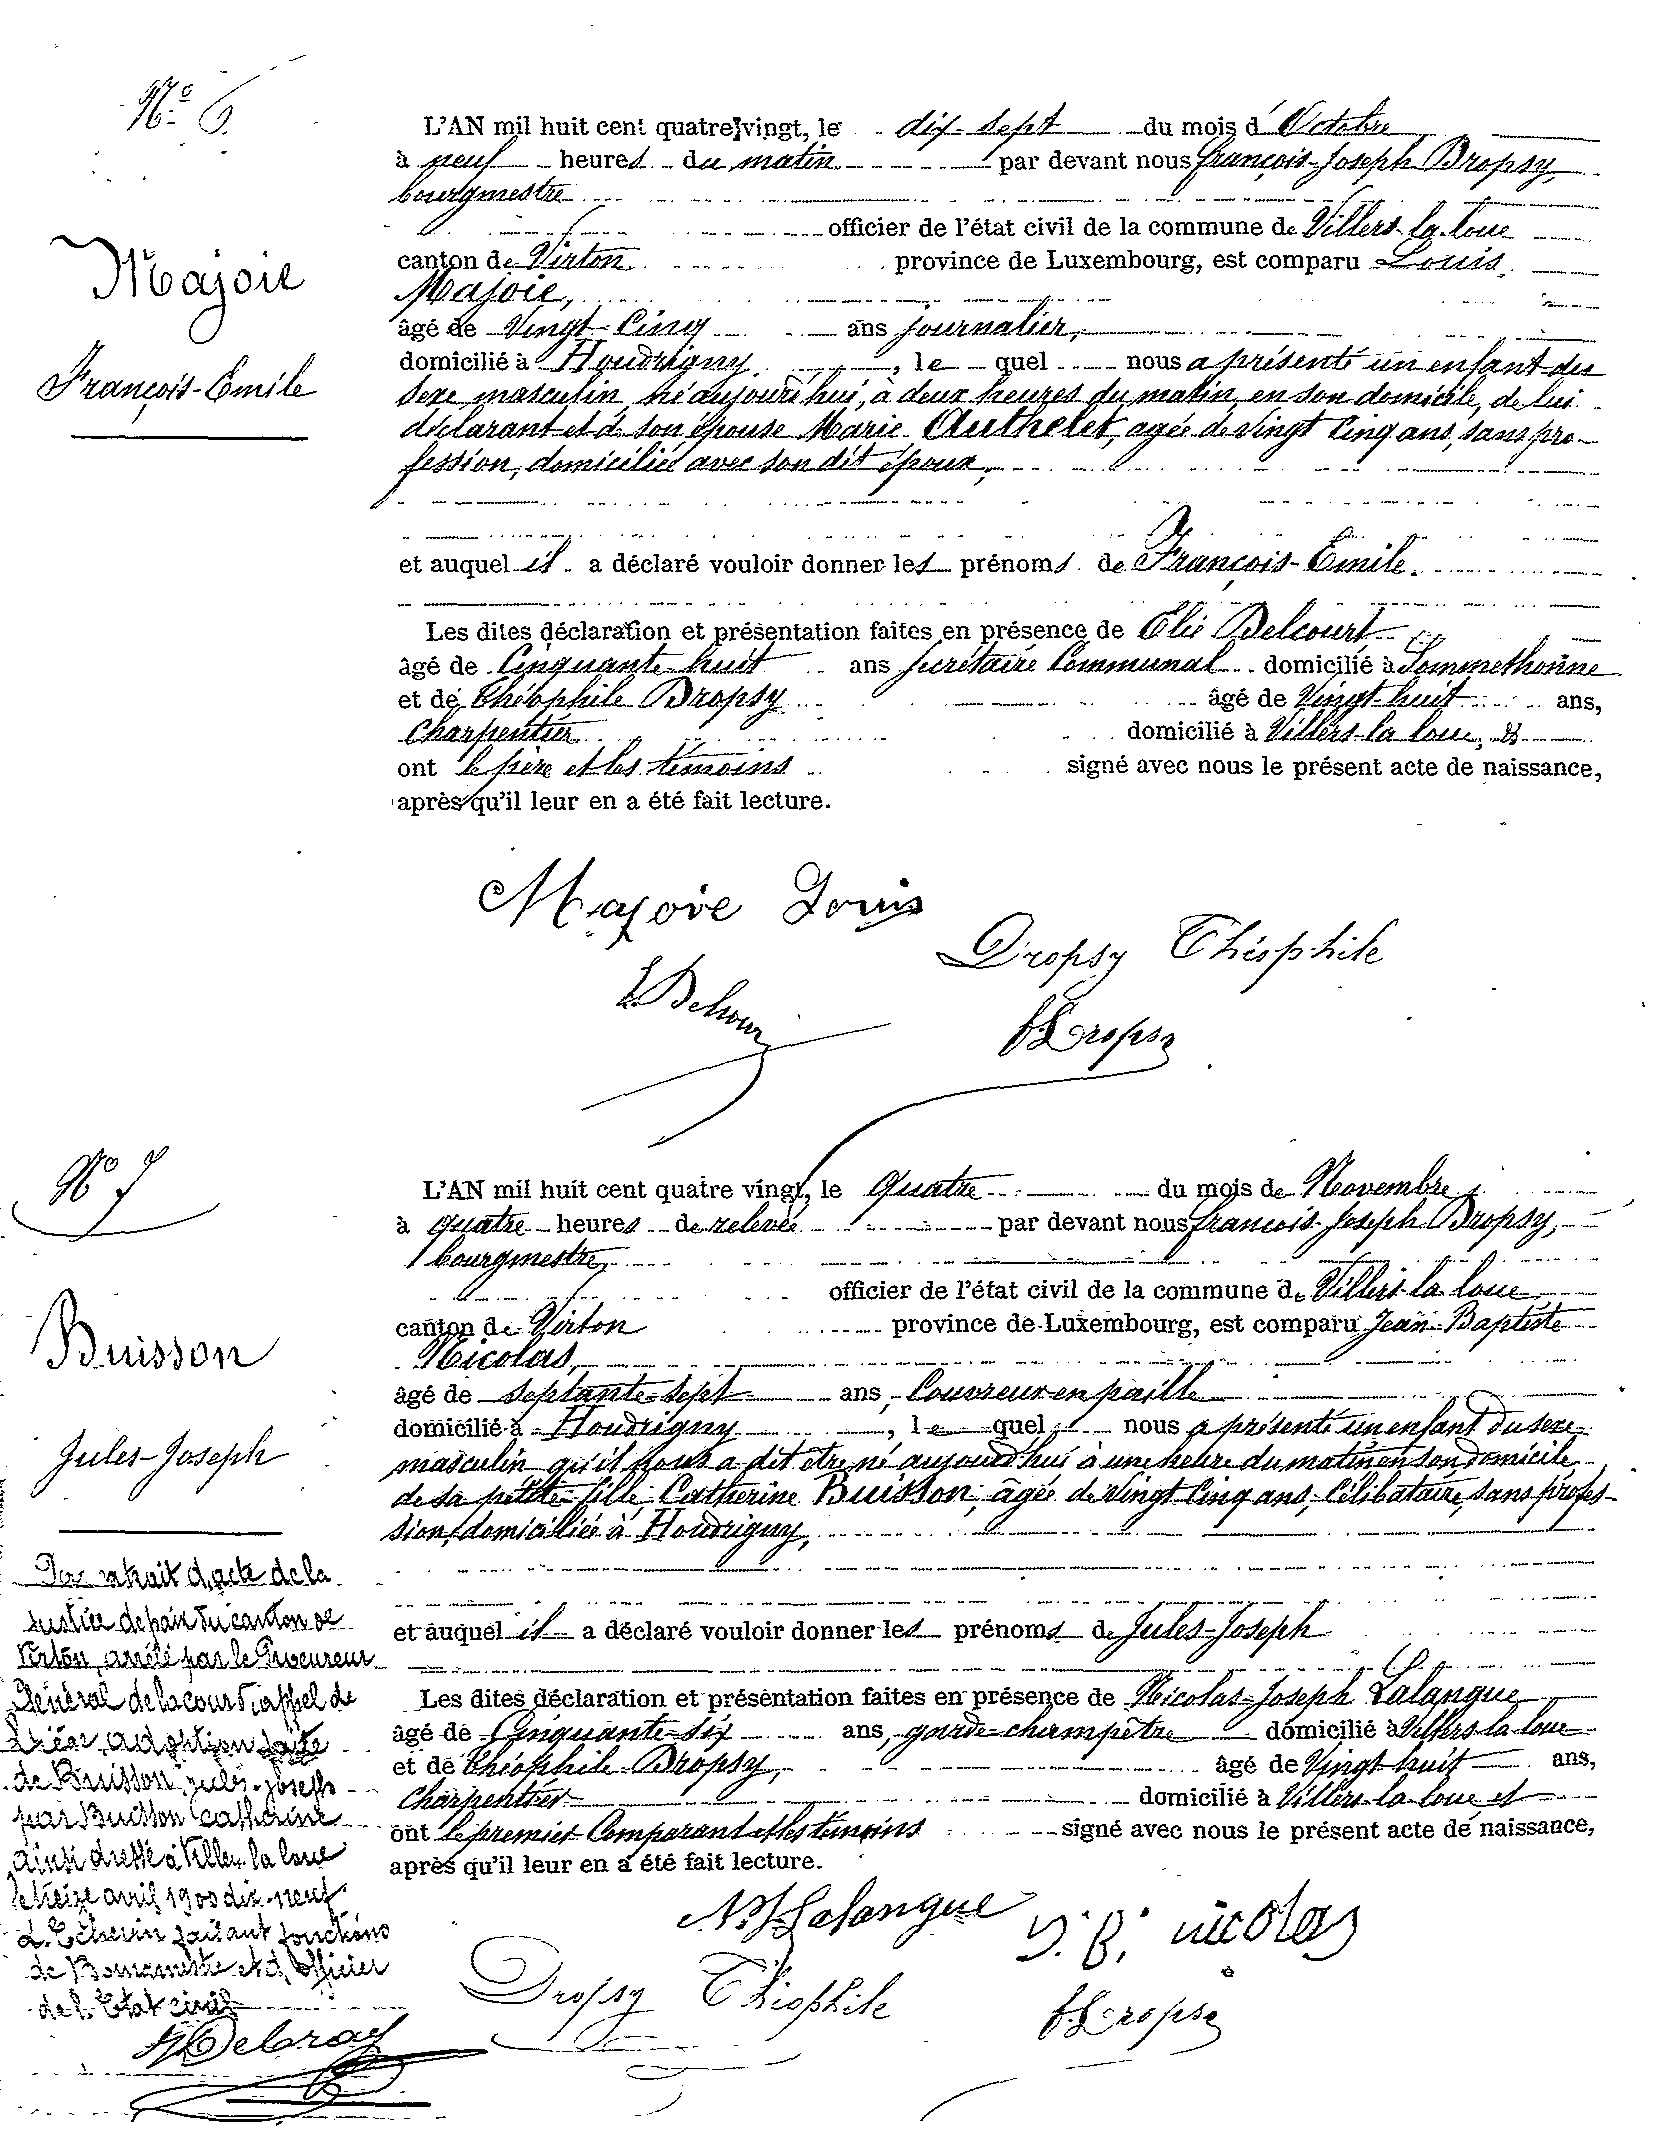 N.º 6.
Majoie
François-Emile
L'AN mil huit cent quatre vingt, le dix-sept du mois d'Octobre
à neuf heures du matin par devant nous François-Joseph Dropsy,
bourgmestre
officier de l'état civil de la commune de Villers-la-loue
canton de Virton province de Luxembourg, est comparu Louis
Majoie,
âgé de Vingt-Cinq ans journalier,
domicilié à Houdrigny, le quel nous a présenté un enfant du
sexe masculin né aujourd'hui, à deux heures du matin, en son domicile, de lui
déclarant et de son épouse Marie Authelet, agée de Vingt Cinq ans, sans pro-
fession, domiciliée avec son dit époux,
et auquel il a déclaré vouloir donner les prénoms de François-Emile.
Les dites déclaration et présentation faites en présence de Elie Delcourt
âgé de Cinquante-huit ans Secrétaire Communal domicilié à Sommethonne
et de Théophile Dropsy âgé de Vingt-huit ans,
Charpentier domicilié à Villers-la-loue, &
ont le père et les témoins signé avec nous le présent acte de naissance,
après qu'il leur en a été fait lecture.
Majoie Louis
Dropsy Théophile
E Delcour
FJDropsy
Nº 7
Buisson
Jules-Joseph
L'AN mil huit cent quatre vingt, le quatre du mois de Novembre,
à quatre heures de relevée par devant nous François-Joseph Dropsy,
bourgmestre,
officier de l'état civil de la commune de Villers-la-loue
canton de Virton province de Luxembourg, est comparu Jean-Baptiste
Nicolas,
âgé de Septante-sept ans, Couvreur en paille
domicilié à Houdrigny, le quel nous a présenté un enfant du sexe
masculin qu'il nous a dit etre né aujourd'hui à une heure du matin en son domicile
de sa petite-fille, Catherine Buisson, âgée de Vingt Cinq ans, Célibataire, sans profes-
sion, domiciliée à Houdrigny,
et auquel il a déclaré vouloir donner les prénoms de Jules-Joseph
Les dites déclaration et présentation faites en présence de Nicolas-Joseph Lalangue
âgé de Cinquante-six ans, garde-champêtre domicilié à Villers-la-loue
et de Théophile Dropsy, âgé de Vingt huit ans,
Charpentier domicilié à Villers-la-loue et
ont le premier Comparant et les témoins signé avec nous le présent acte de naissance,
après qu'il leur en a été fait lecture.
N.J Lalangue
J. B. nicolas
Dropsy Théophile
FJDropsy
Par extrait d'acte de la
Justice de paix du canton de
Virton, arrêté par le Procureur
Général de la cour d'appel de
adoption faite
de Buisson Jules-Joseph
par Buisson Catherine
ainsi dressé à Villers-la-loue
le treize avril 1900 dix-neuf
L'Echevin faisant fonctions
de Bourgmestre et d'officier
de l'Etat civil